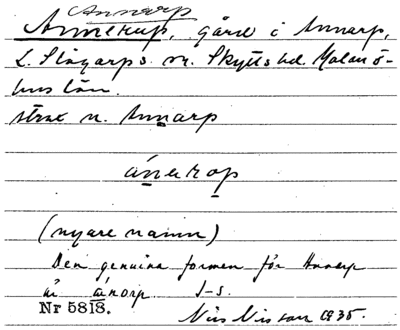 Annarp
Annerup, gård i Annarp,
L. Slågarps sn. Skytts hd. Malmö-
hus län.
strax n. Annarp
ánarop
(nyare namn)
Den genuina formen för Annarp
är ánorp J-s.
Nr 5818. Nils Nilsson 1935.